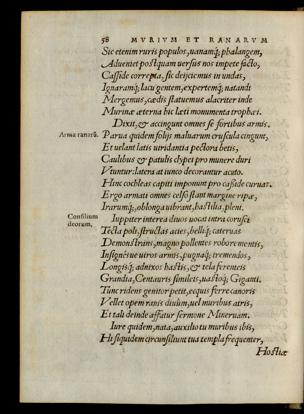 58 MVRIVM ET RANARVM
Sic etenim ruris populos, uanamq; phalangem,
Adueniet postquam uersus nos impete facto,
Casside correpta, sic deijciemus in undas,
Ignaramq; lacu gentem, expertemq; natandi
Mergemus, cædis statuemus alacriter inde
Murinæ æterna hic læti monumenta trophæi.
Dixit, & accingunt omnes se fortibus armis.
Arma ranarū.
Parua quidem folijs maluarum cruscula cingunt,
Et uelant latis uiridantia pectora betis,
Caulibus & patulis clypei pro munere duri
Vtuntur: latera at iunco decorantur acuto.
Hinc cochleas capiti imponunt pro casside curuas.
Ergo armati omnes celso stant margine ripæ,
Irarumq;, oblonga uibrant, hastilia, pleni.
Consilium
deorum.
Iuppiter interea diuos uocat intra corusci
Tecta poli, structas acies, belliq; cateruas
Demonstrans, magno pollentes robore mentis,
Insignesue uiros armis, pugnaq; tremendos,
Longisq; adnixos hastis, & tela ferentes
Grandia, Centauris similes, uastoq; Giganti.
Tunc ridens genitor petit, ecquis ferre canoris
Vellet opem ranis diuûm, uel muribus atris,
Et tali deinde affatur sermone Mineruam.
Iure quidem, nata, auxilio tu muribus ibis,
Hi siquidem circunsiliunt tua templa frequenter,
Hostiæ